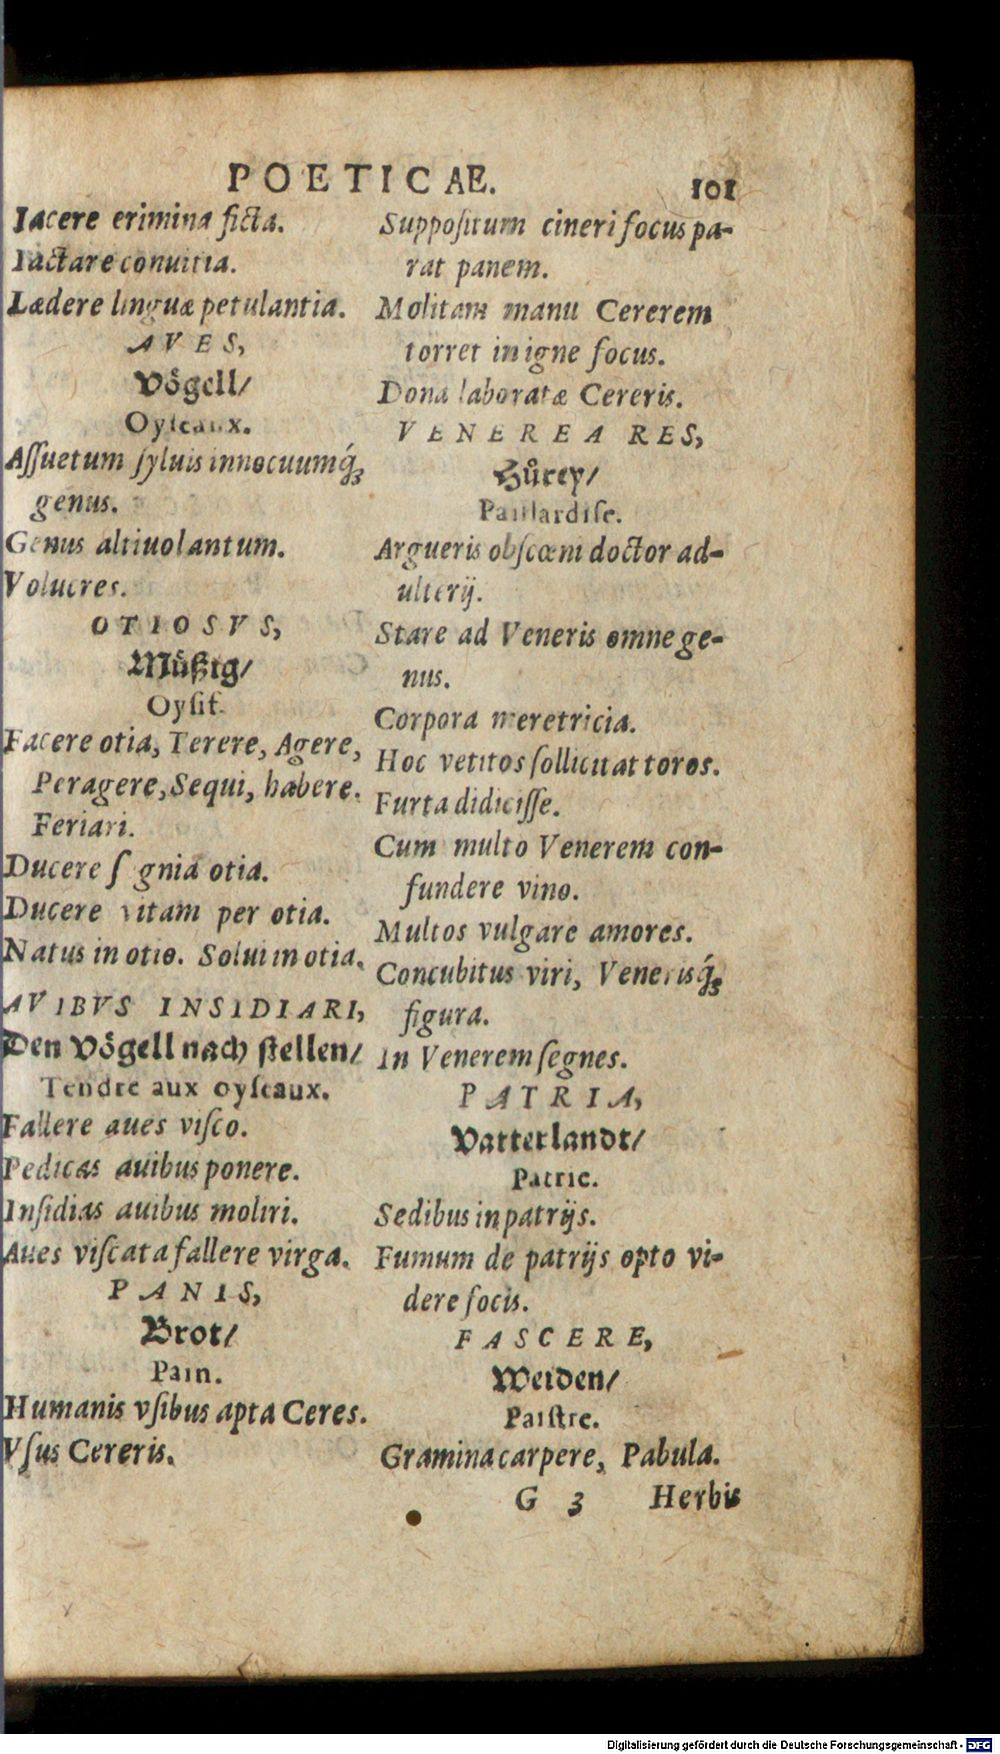 POETICAE. 101
Iacere erimina ficta.
Iactare conuitia.
Lædere linguæ petulantia.
AVES,
Vögell/
Oyſeaux.
Aſſuetum ſyluis innocuumq́;
genus.
Genus altiuolantum.
Volucres.
OTIOSVS,
Müßig/
Oyſif.
Facere otia, Terere, Agere,
Peragere, Sequi, habere.
Feriari.
Ducere ſ gnia otia.
Ducere vitam per otia.
Natus in otio. Solui in otia.
AVIBVS INSIDIARI,
Den Vögell nach ſtellen/
Tendre aux oyſeaux.
Fallere aues viſco.
Pedicas auibus ponere.
Inſidias auibus moliri.
Aues viſcata fallere virga.
PANIS,
Brot/
Pain.
Humanis vſibus apta Ceres.
Vſus Cereris.
Suppoſitum cineri focus pa-
rat panem.
Molitam manu Cererem
torret in igne focus.
Dona laboratæ Cereris.
VENEREA RES,
Hůrey/
Paillardiſe.
Argueris obſcœni doctor ad-
ulterij.
Stare ad Veneris omne ge-
nus.
Corpora meretricia.
Hoc vetitos ſollicitat toros.
Furta didiciſſe.
Cum multo Venerem con-
fundere vino.
Multos vulgare amores.
Concubitus viri, Venerisq́;
figura.
In Venerem ſegnes.
PATRIA,
Vatterlandt/
Patrie.
Sedibus in patrijs.
Fumum de patrijs opto vi-
dere focis.
FASCERE,
Weiden/
Paiſtre.
Gramina carpere, Pabula.
G 3 Herbis
Digitalisierung gefördert durch die Deutsche Forschungsgemeinschaft - DFG